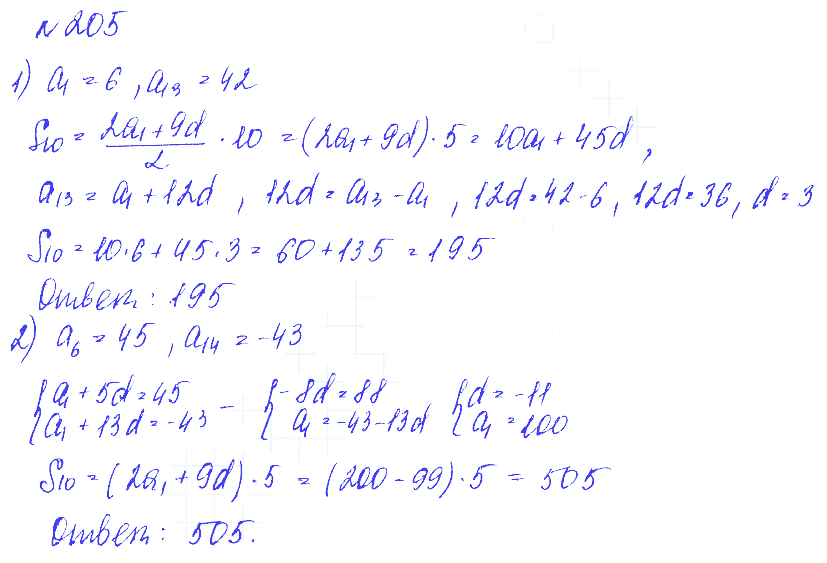 № 205
1) a₁ = 6, a₁₃ = 42
S₁₀ = (2a₁ + 9d)/2 · 10 = (2a₁ + 9d) · 5 = 10a₁ + 45d,
a₁₃ = a₁ + 12d, 12d = a₁₃ - a₁, 12d = 42 - 6, 12d = 36, d = 3
S₁₀ = 10·6 + 45·3 = 60 + 135 = 195
Ответ: 195
2) a₆ = 45, a₁₄ = -43
{a₁ + 5d = 45 − {-8d = 88 {d = -11
{a₁ + 13d = -43 {a₁ = -43 - 13d {a₁ = 100
S₁₀ = (2a₁ + 9d) · 5 = (200 - 99) · 5 = 505
Ответ: 505.